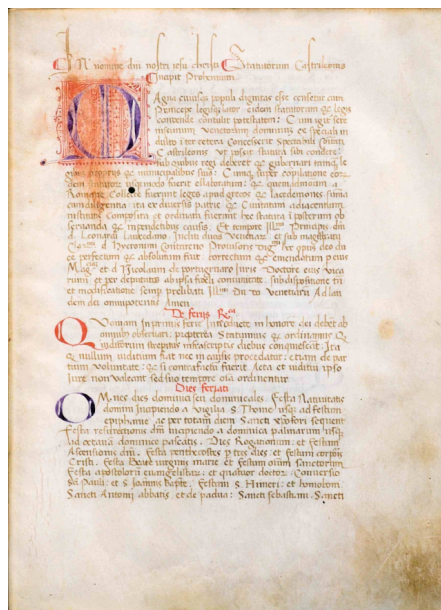 IN nomine dni nostri iesu christi Statutorum Castrileonis
Incipit Prohemium
Magna cuiusque populi dignitas esse censetur cum
Princeps legislator eidem statutorum et legis
condende contulit potestatem: Cum igitur sere
nissimum Venetorum dominium ex speciali in
dulto inter cetera Concesserit
Castrileonis ut possit statuta sibi condere
sub quibus regi deberet et gubernari
propriis et municipalibus suis: Cumque super
statutorum modo fuerit ellaboratum: et quemadmodum a
fuerunt leges apud grecos et lacedemones summa
cum diligentia ita ex diversis patrie et Civitatum adiacentium
composita et ordinata fuerint hec statuta in posterum ob
servanda et inpendentibus causis: Et tempore Illmi Principis dni
d. Leonardi Lauredano Incliti ducis Venetiarum et sub magistratu
d. Hieronimi Contareno Provisoris opus deo du
ce perfectum et absolutum fuit correctum et emendatum per eius
et d. Nicolaum de portugruario Juris Doctore eius vica
rium et per deputatos ab ipsa fideli comunitate subdispositione tn
et modificatione semper prelibati Illmi Du co Venetiarum Ad lau
dem dei omnipotentis Amen
De ferijs
QUoniam Inprimis ferie Introducte in honore dei debet ab
omnibus observari: propterea Statuimus et ordinamus
iuditiorum strepitus infrascriptis diebus conquiescat: Ita
quod nullum iuditium fiat nec in causis procedatur: etiam de par
tium voluntate: et si contrafactum fuerit Acta et iuditium ipso
Jure non valeant sed suo tempore
Dies feriati
OMnes dies dominici seu dominicales. Festa Nativitatis
domini Incipiendo a vigilia S. Thome usque ad festum
epiphanie ac per totam diem Sancti sequent
Festa resurectionis dni incipiendo a dominica palmarum usque
ad octavam dominice pascatis. Dies Rogationum: et festum
Ascensionis dni. Festa penthecostes per tres dies: et festum corporis
Cristi. festa Beate virginis marie et festum oium Sanctorum
Festa apostolorum evangelistarum: et quatuor doctorum: Conversio
Sti Pauli: et S. Joannis bapte. Festum S. Himeri: et homoboni
Sancti Antonii abbatis et de padua: Sancti sebastiani. Sancti